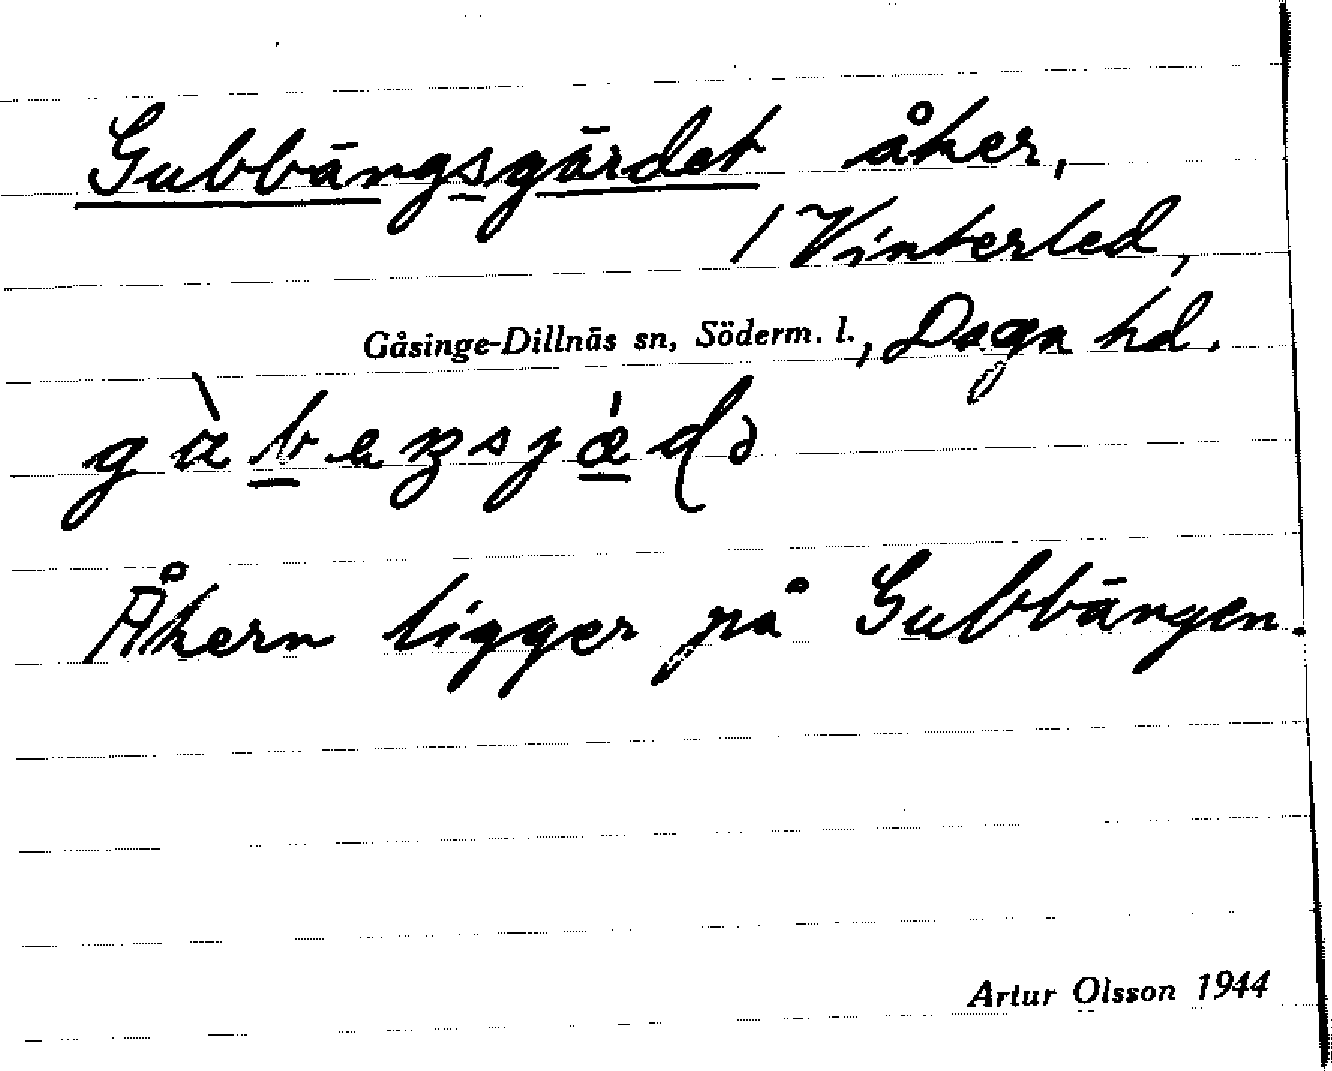 Gubbängsgärdet åker,
/ Vinterled,
Gåsinge-Dillnäs sn, Söderm. l., Daga hd.
Åkern ligger på Gubbängen.
Artur Olsson 1944